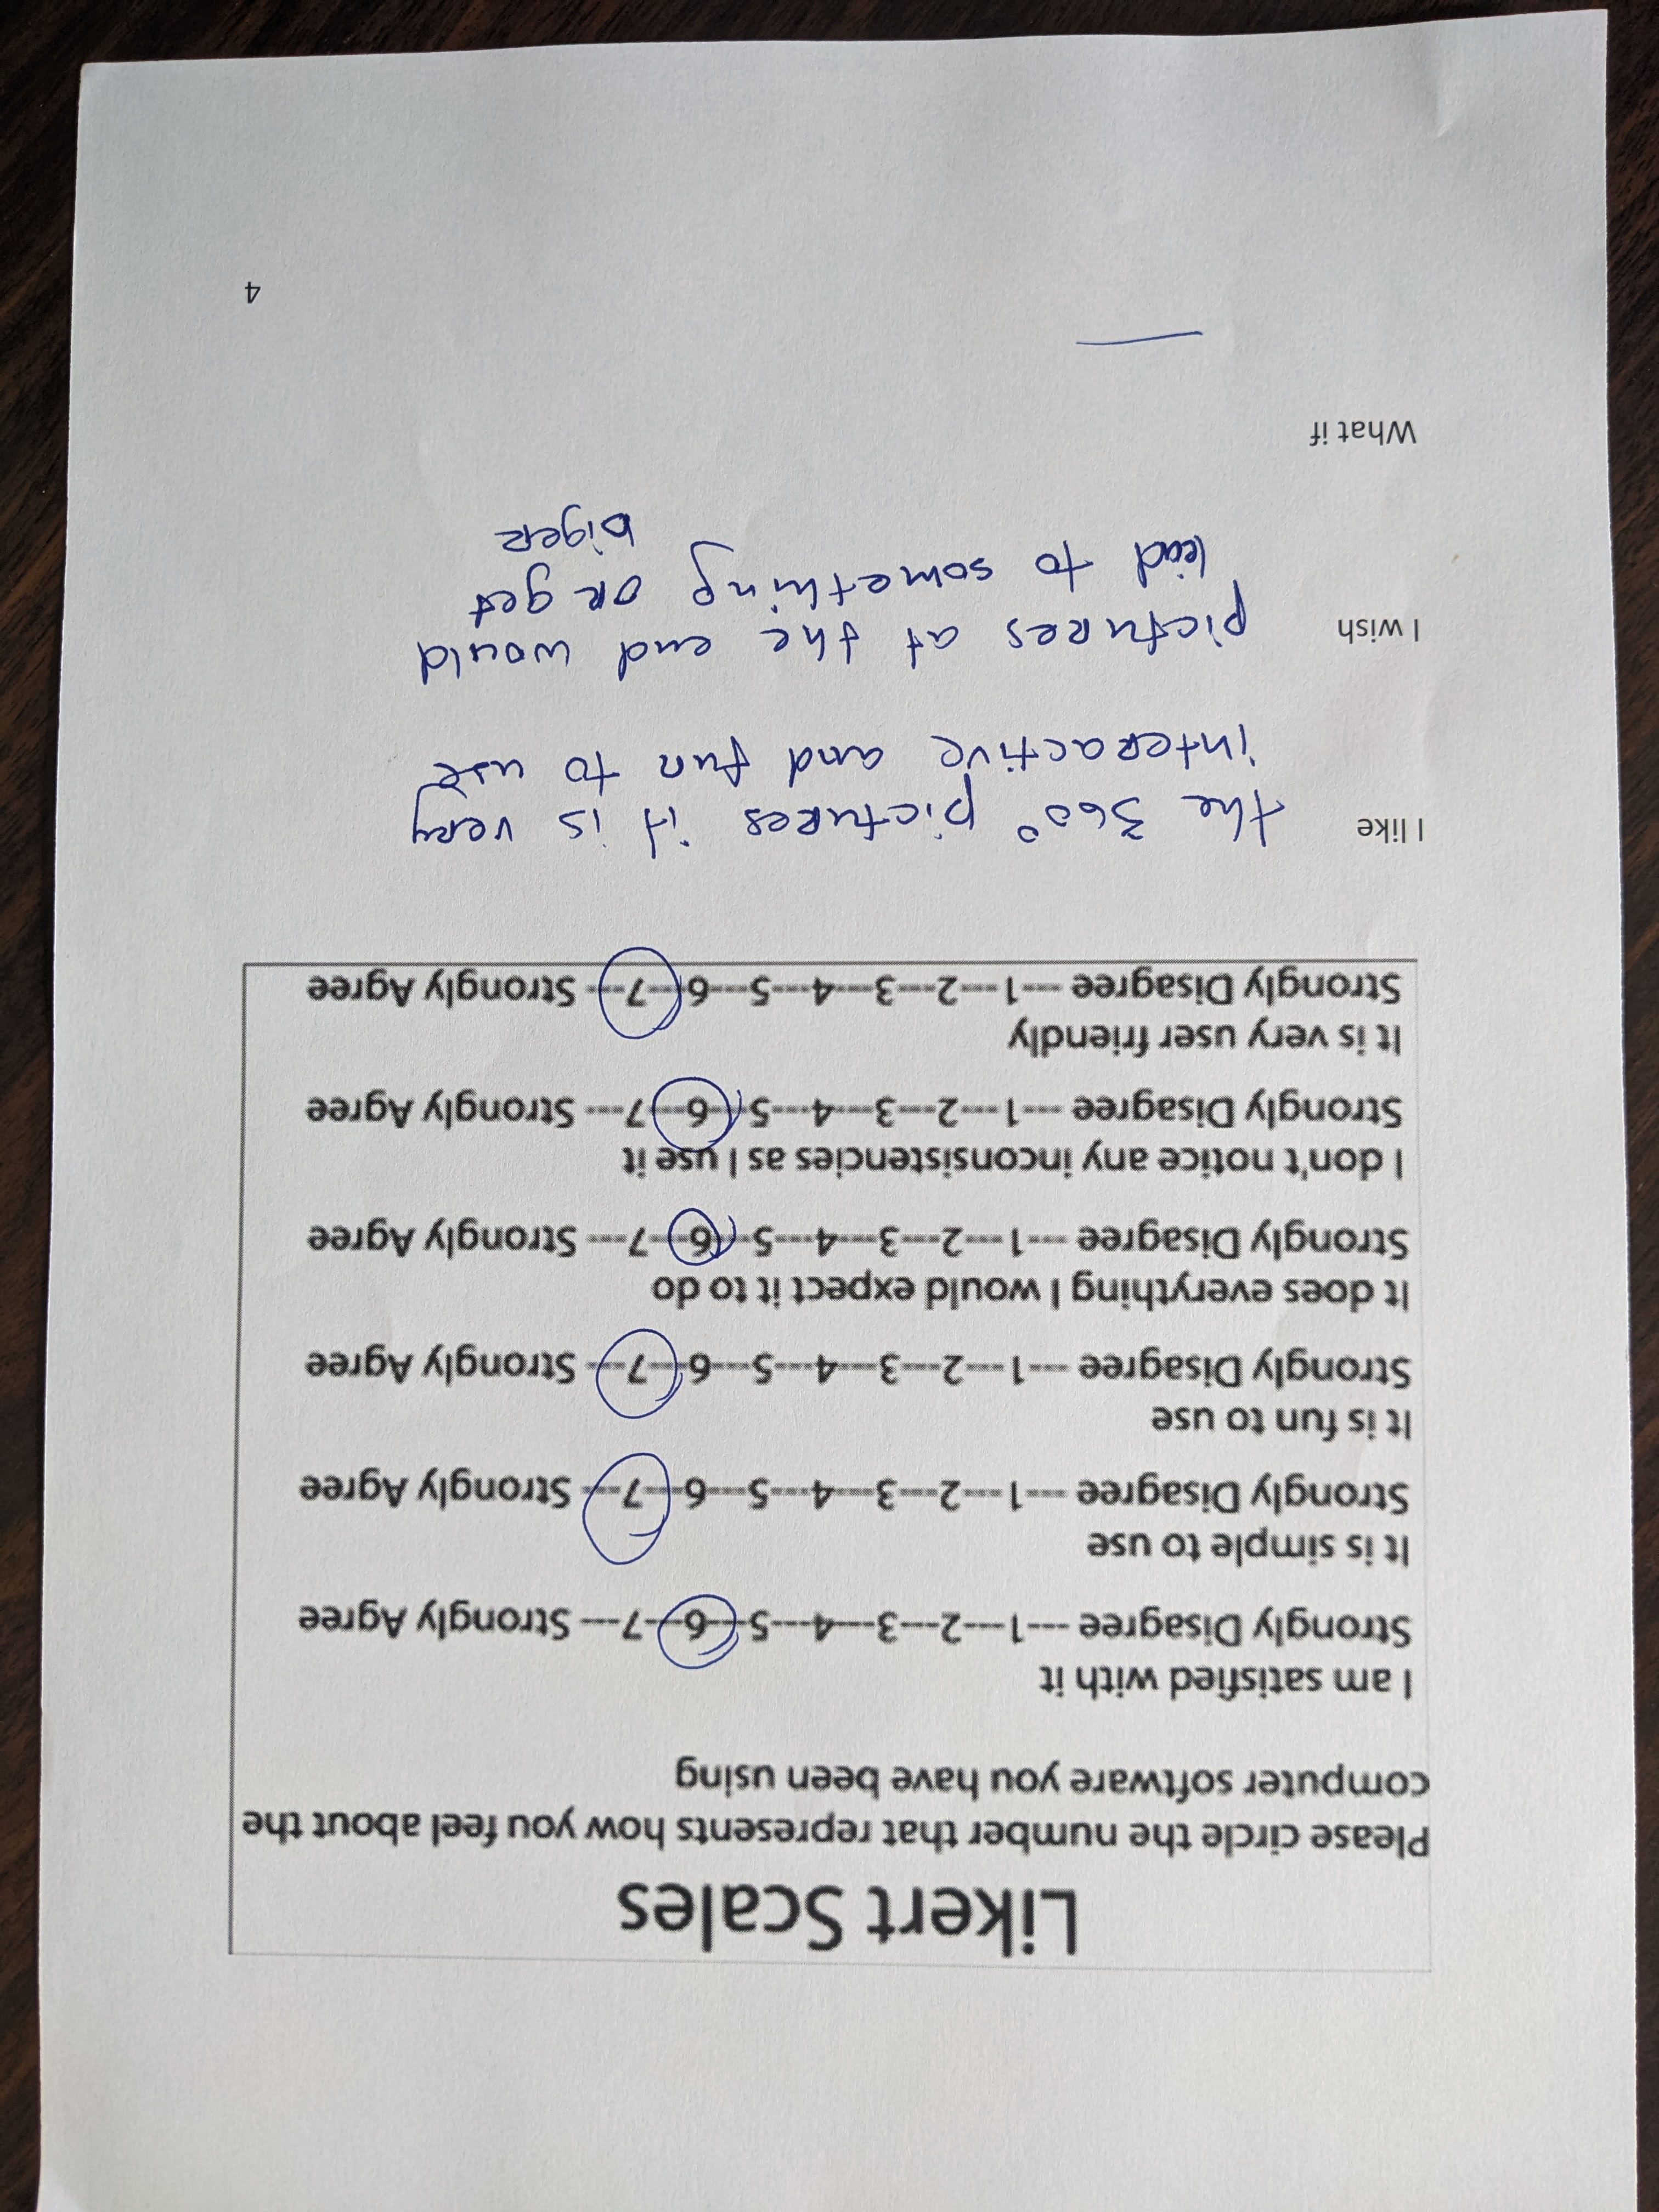 Likert Scales
Please circle the number that represents how you feel about the
computer software you have been using
I am satisfied with it
Strongly Disagree ---1---2---3---4---5---6---7--- Strongly Agree
It is simple to use
Strongly Disagree ---1---2---3---4---5---6---7--- Strongly Agree
It is fun to use
Strongly Disagree ---1---2---3---4---5---6---7--- Strongly Agree
It does everything I would expect it to do
Strongly Disagree ---1---2---3---4---5---6---7--- Strongly Agree
I don't notice any inconsistencies as I use it
Strongly Disagree ---1---2---3---4---5---6---7--- Strongly Agree
It is very user friendly
Strongly Disagree ---1---2---3---4---5---6---7--- Strongly Agree
I like the 360° pictures it is very
interactive and fun to use
I wish pictures at the end would
lead to something or get
biger
What if
4